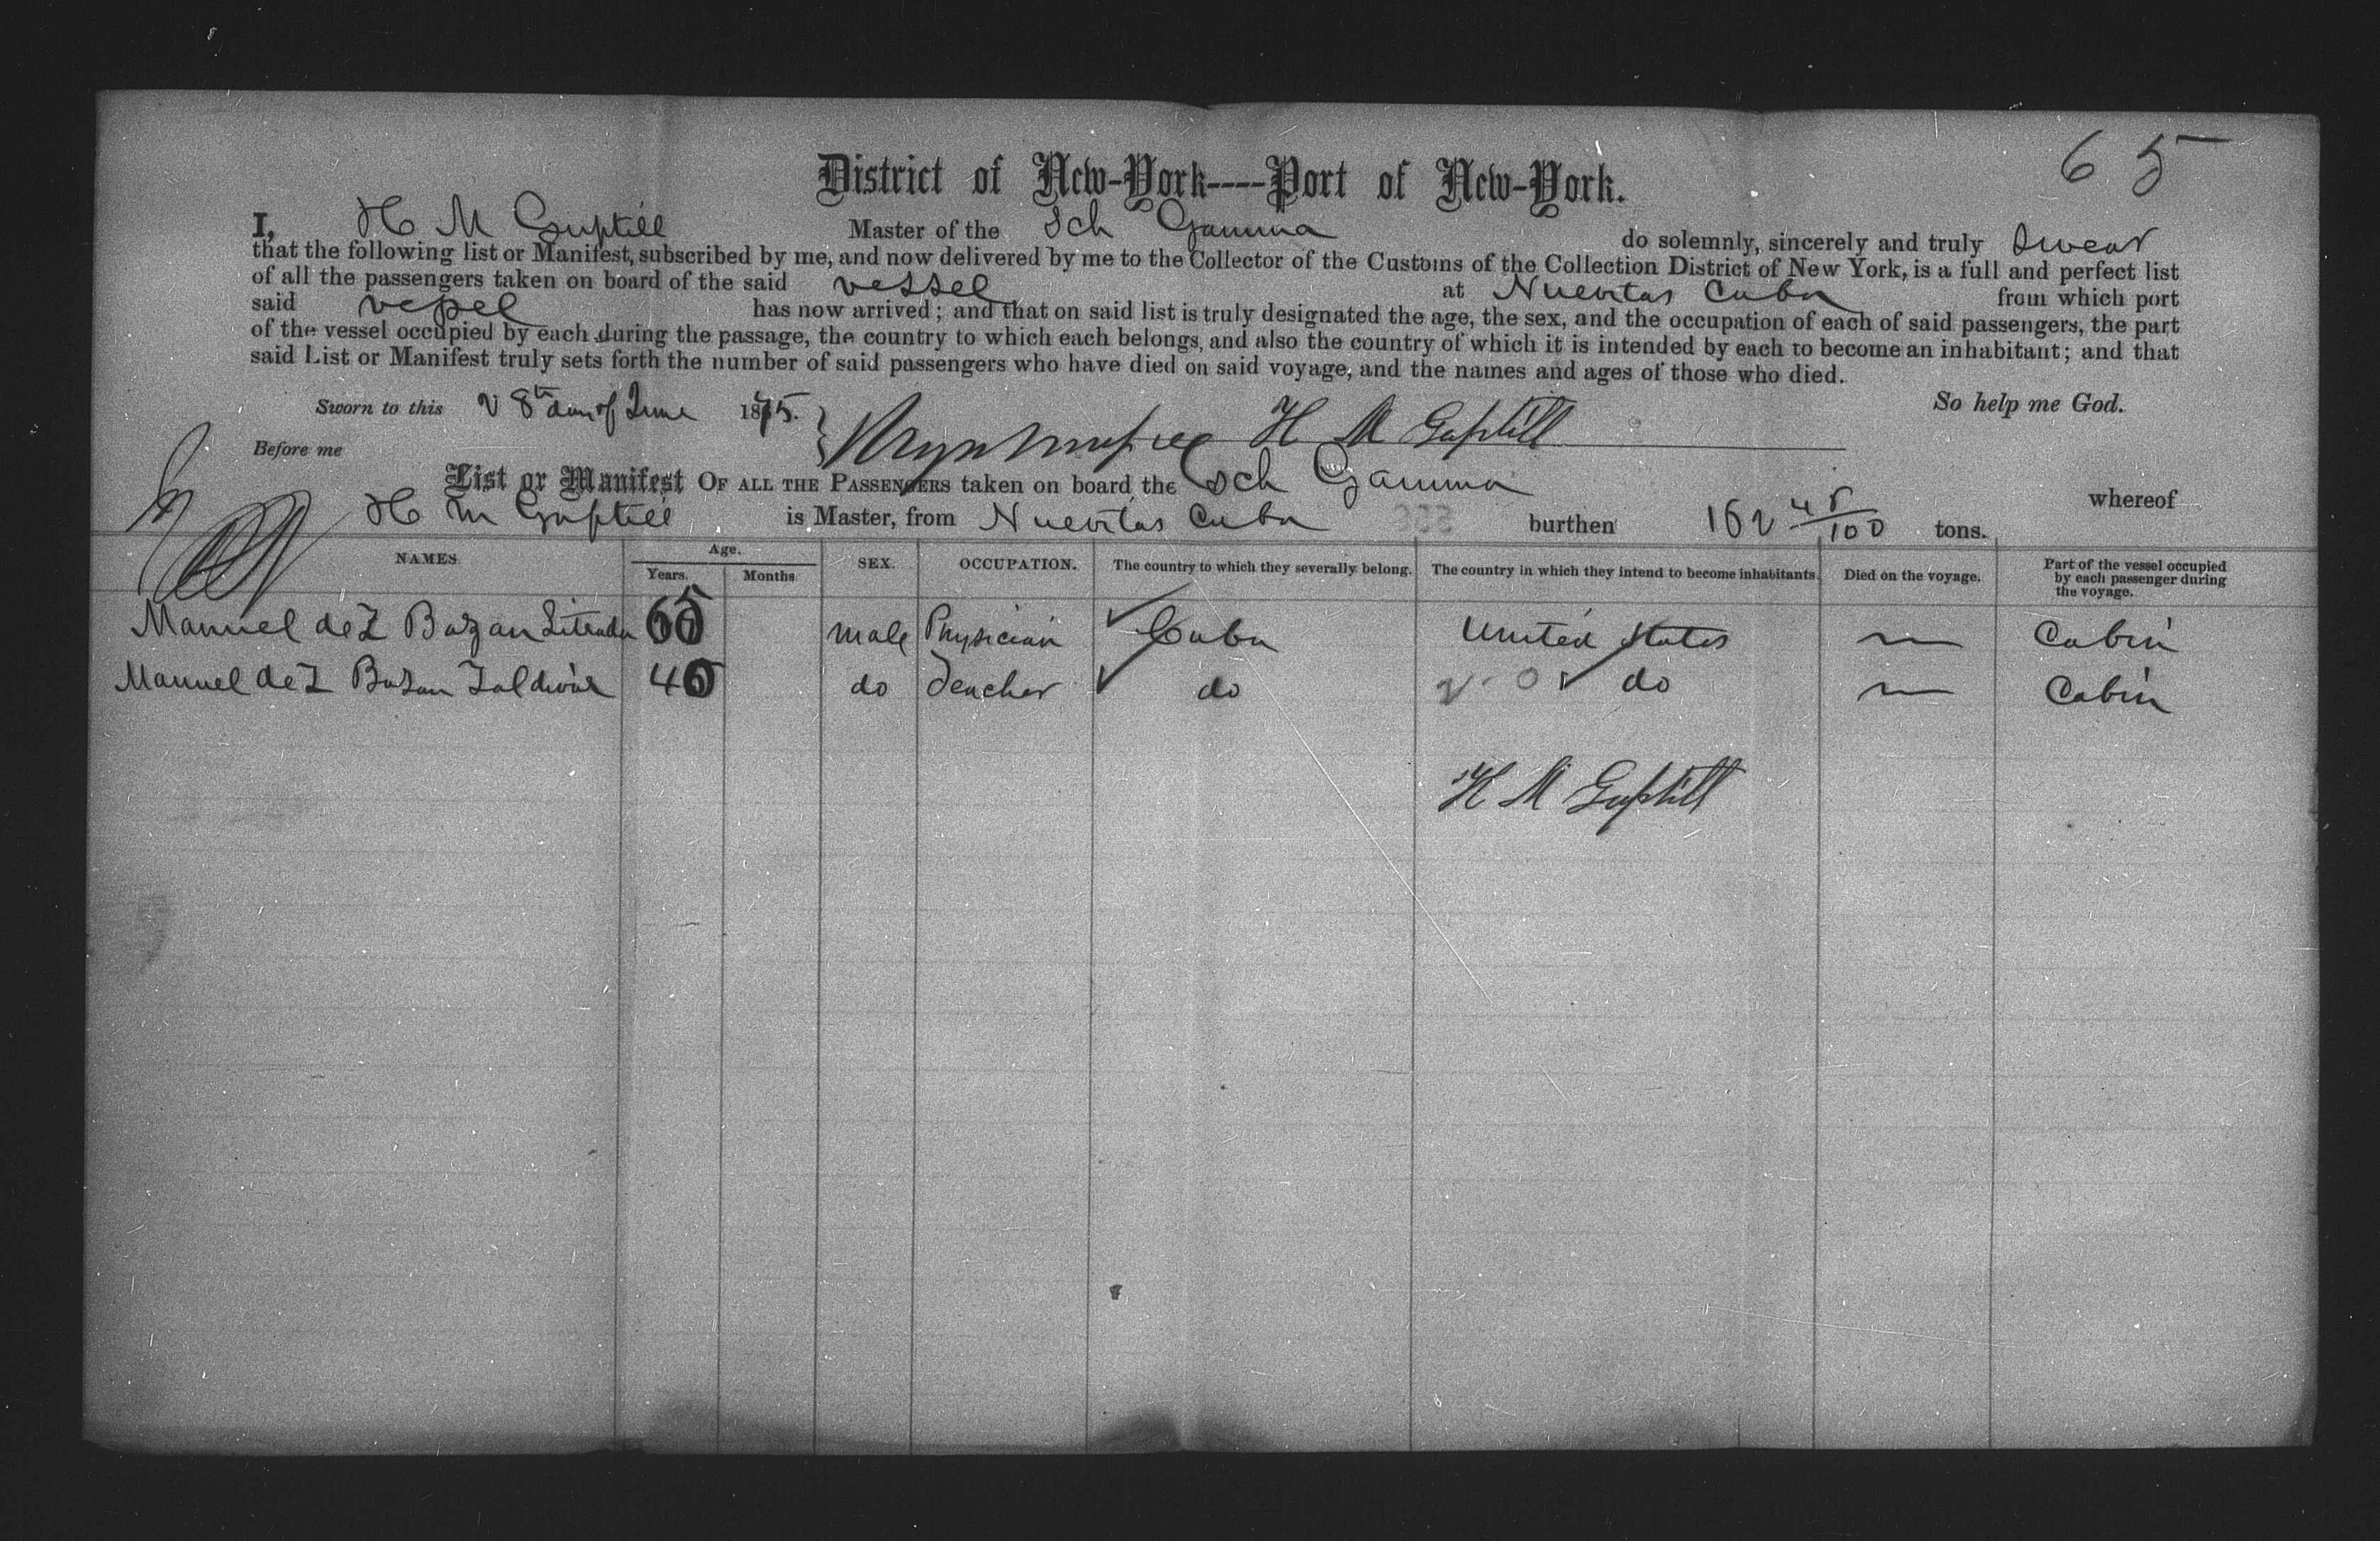 65
District of New-York----Port of New-York.
I, H M Guptill Master of the Sch Gamma do solemnly, sincerely and truly swear
that the following list or Manifest, subscribed by me, and now delivered by me to the Collector of the Customs of the Collection District of New York, is a full and perfect list
of all the passengers taken on board of the said vessel at Nuevitas Cuba from which port
said vessel has now arrived; and that on said list is truly designated the age, the sex, and the occupation of each of said passengers, the part
of the vessel occupied by each during the passage, the country to which each belongs, and also the country of which it is intended by each to become an inhabitant; and that
said List or Manifest truly sets forth the number of said passengers who have died on said voyage, and the names and ages of those who died.
Sworn to this 28th day of June 1875. So help me God.
Before me H M Guptill
List or Manifest OF ALL THE PASSENGERS taken on board the Sch Gamma whereof
H M Guptill is Master, from Nuevitas Cuba burthen 162 45/100 tons.
NAMES Age. Years. Months SEX. OCCUPATION. The country to which they severally belong. The country in which they intend to become inhabitants. Died on the voyage. Part of the vessel occupied by each passenger during the voyage.
Manuel de Z Bazan 65 male Physician Cuba United States — Cabin
Manuel de Z Bazan Zaldivar do Teacher do do — Cabin
H M Guptill